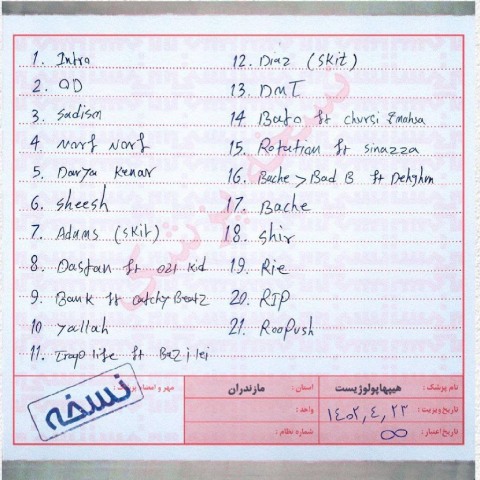 1. Intro
2. OD
3. Sadism
4. Norf Norf
5. Darya Kenar
6. Sheesh
7. Adams (Skit)
8. Dastan ft 021 Kid
9. Bank ft Catchy Beatz
10 Yallah
11. Trap life ft Bazilei
12. Diaz (Skit)
13. DMT
14 Bato ft chvrsi & mahsa
15. Rotation ft sinazza
16. Bache > Bad B ft Dehghan
17. Bache
18. Shir
19. Rie
20. RIP
21. RooPush
نسخه پزشکی
نام پزشک : هیپهاپولوژیست
استان : مازندران
مهر و امضاء پزشک :
تاریخ ویزیت : ۱۴۰۲,۴,۲۳
واحد :
تاریخ اعتبار : ∞
شماره نظام :
نسخه